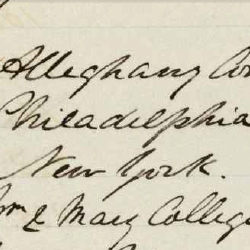 Alleghany Co
Philadelphia
New York.
Wm & Mary Colleg